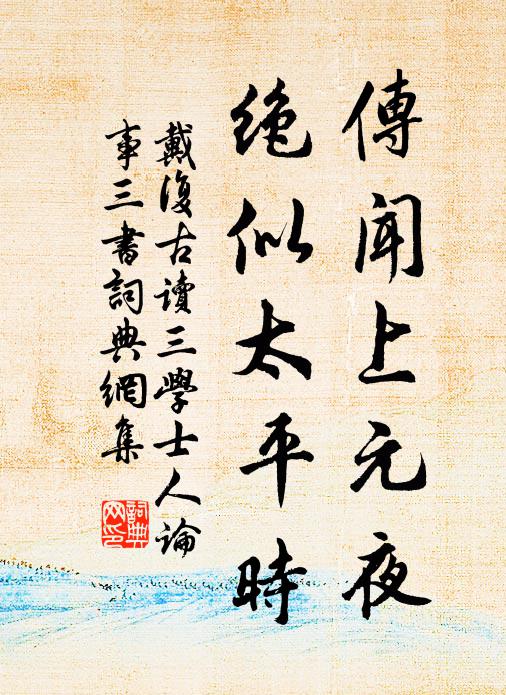 傳聞上元夜
绝似太平時
戴復古讀三學士人論
事三書詞典網集
詞典
网印